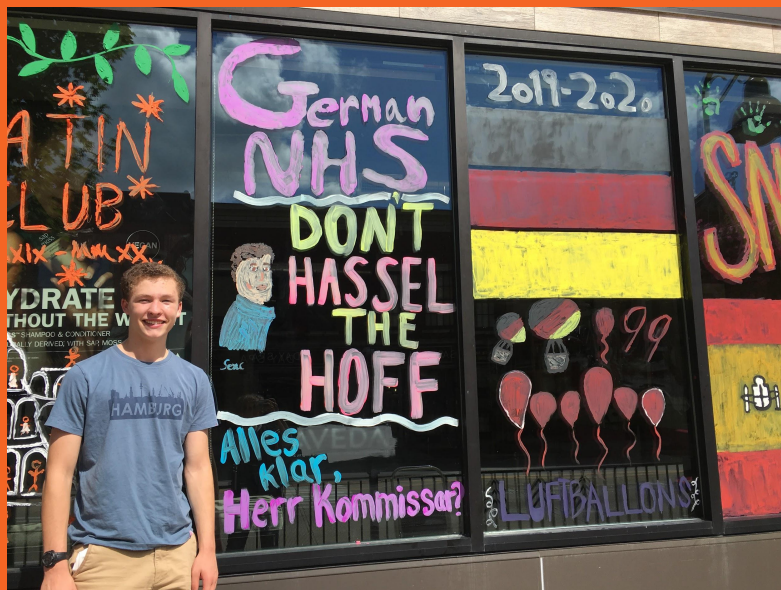 ATIN
CLUB
XIX-MMXX
VEGAN
YDRATE
THOUT THE W T
SHAMPOO & CONDITIONER
ALLY DERIVED, WITH SAR MOSS
HAMBURG
German
NHS
DON'T
HASSEL
THE
HOFF
AVEDA
Alles
klar,
Herr Kommissar?
2019-2020
99
LUFTBALLONS
SN